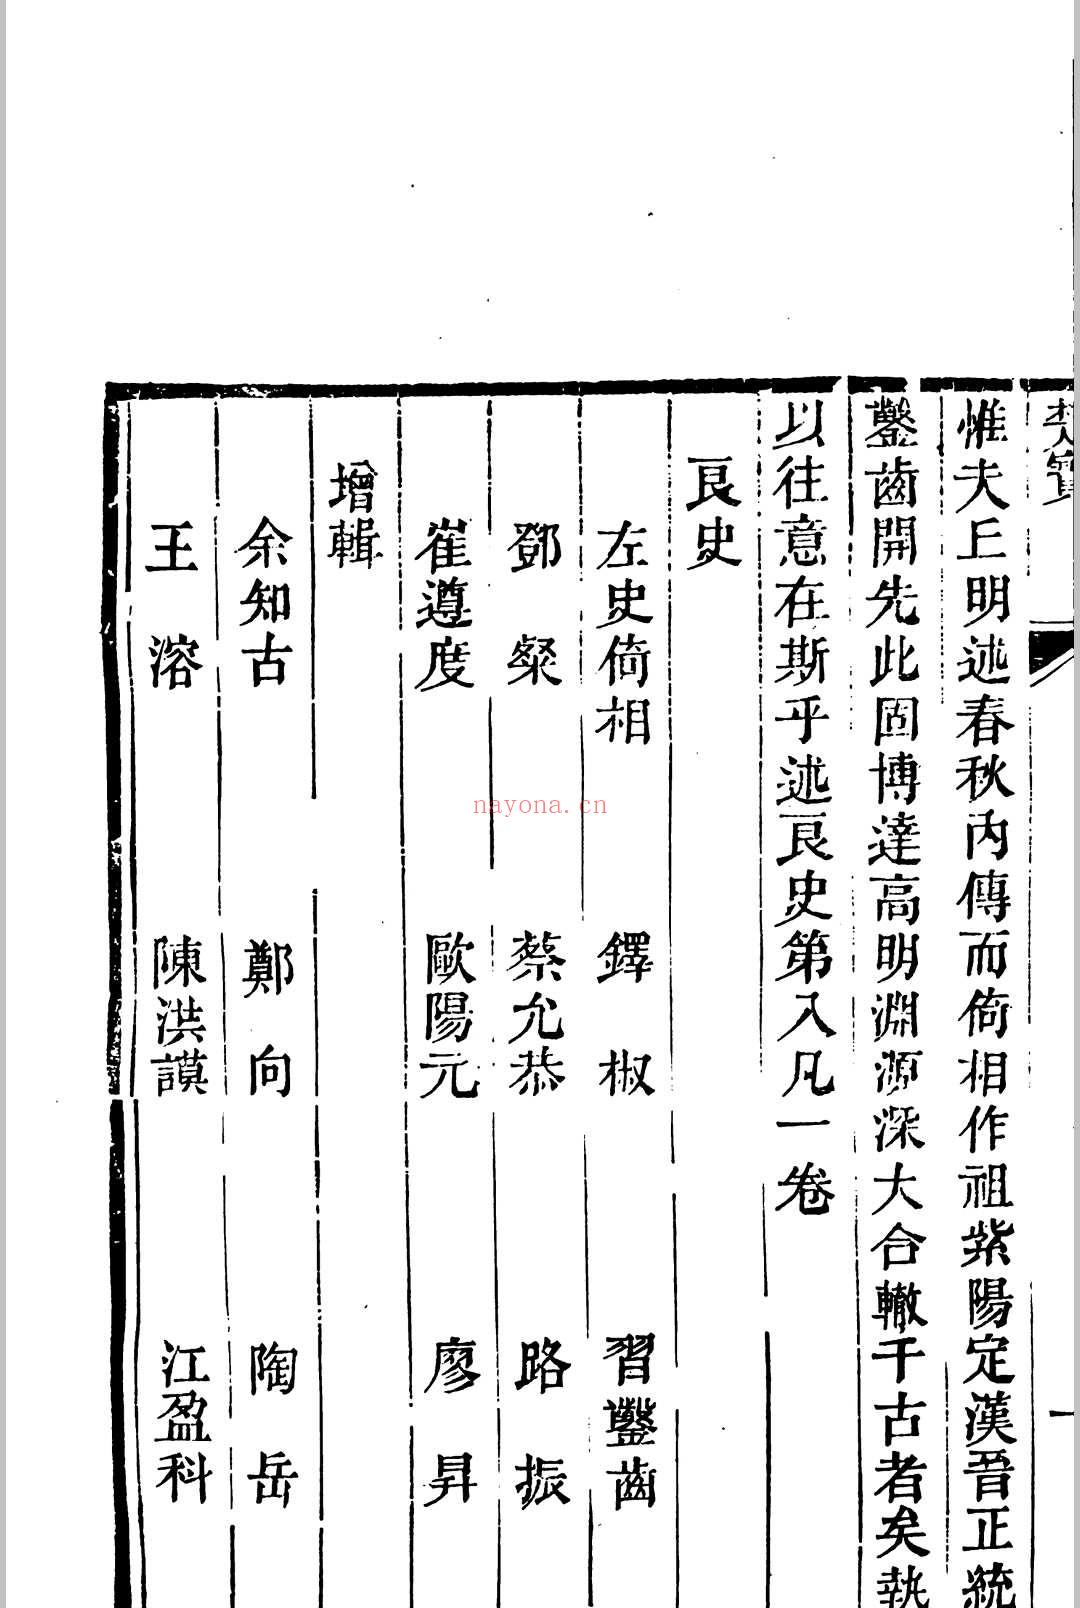 楚寶
一
惟夫丘明述春秋內傳而倚相作祖紫陽定漢晉正統
鑿齒開先此固博達高明淵源深大合轍千古者矣執
以往意在斯乎述良史第入凡一卷
良史
左史倚相 鐸椒 習鑿齒
鄧粲 蔡允恭 路振
崔遵度 歐陽元 廖昇
增輯
余知古 鄭向 陶岳
王溶 陳洪謨 江盈科
nayona.cn